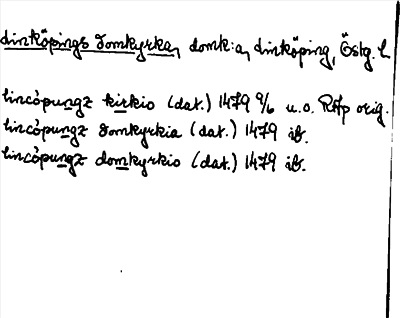 Linköpings domkyrka, domk:a, Linköping, Östg. l
lincöpungz kirkio (dat.) 1479 9/6 u.o. RAp orig.
lincöpungz domkyrkia (dat.) 1479 ib.
lincöpungz domkyrkio (dat.) 1479 ib.